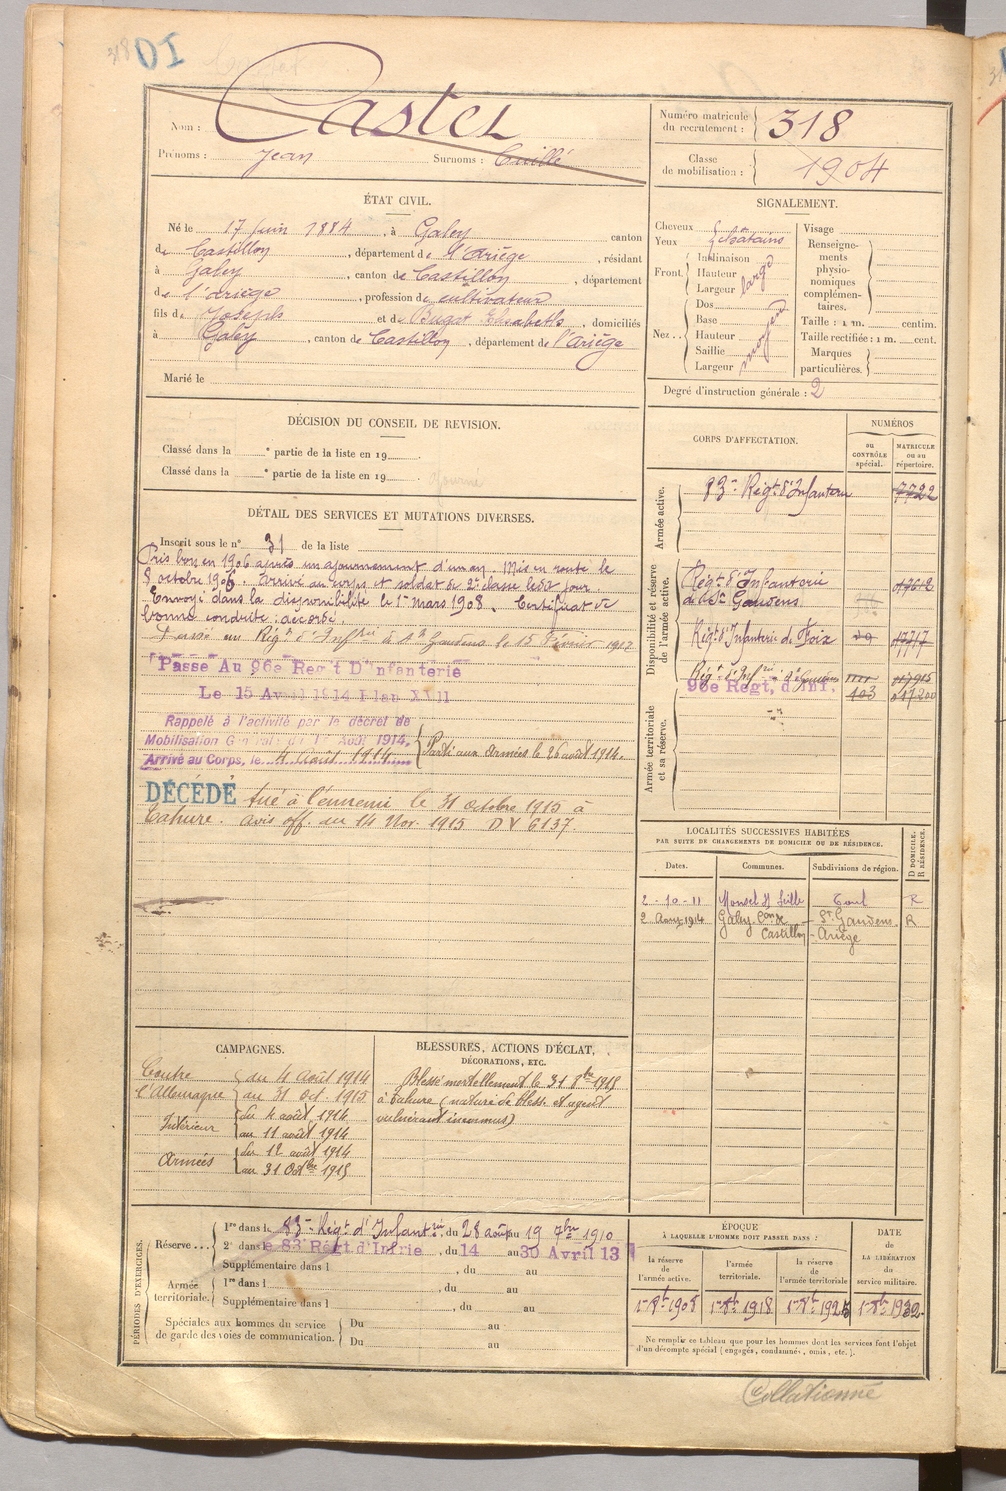 318 DI
Nom : Castel
Prénoms : Jean Surnoms : Cuillé
Numéro matricule du recrutement : 318
Classe de mobilisation : 1904
ÉTAT CIVIL.
Né le 17 juin 1884, à Galey canton
de Castillon, département de l'Ariège, résidant
à Galey, canton de Castillon, département
de l'Ariège, profession de cultivateur
fils de Joseph et de Bugat Elisabeth, domiciliés
à Galey, canton de Castillon, département de l'Ariège
Marié le
SIGNALEMENT.
Cheveux
Yeux châtains
Front. Inclinaison
Hauteur
Largeur large
Nez .. Dos
Base
Hauteur
Saillie
Largeur moyen
Visage
Renseignements physionomiques complémentaires.
Taille : 1 m. centim.
Taille rectifiée : 1 m. cent.
Marques particulières.
Degré d'instruction générale : 2
DÉCISION DU CONSEIL DE REVISION.
Classé dans la e partie de la liste en 19 .
Classé dans la e partie de la liste en 19 .
Ajourné
DÉTAIL DES SERVICES ET MUTATIONS DIVERSES.
Inscrit sous le n° 31 de la liste
Pris bon en 1906 après un ajournement d'un an. Mis en route le
8 octobre 1906. Arrivé au corps et soldat de 2e classe le dit jour
Envoyé dans la disponibilité le 1er mars 1908. Certificat de
bonne conduite : accordé.
Passé au Régt d'Infrie de St Gaudens le 15 Février 1912
Passé Au 96e Reg't D'Infanterie
Le 15 Avril 1914 Plan XVII
Rappelé à l'activité par le décret de
Mobilisation Générale du 1er Août 1914.
Arrivé au Corps, le 4 Août 1914.
Parti aux Armées le 26 août 1914.
DÉCÉDÉ tué à l'ennemi le 31 octobre 1915 à
Tahure. avis off. du 14 Nov. 1915 DV 6137.
CORPS D'AFFECTATION.
NUMÉROS
au CONTRÔLE spécial.
MATRICULE ou au répertoire.
Armée active.
83e Régt d'Infanterie 7722
Disponibilité et réserve de l'armée active.
Régt d'Infanterie
de St Gaudens
Régt d'Infanterie de Foix
96e Régt, d'Inf. 403
Armée territoriale et sa réserve.
LOCALITÉS SUCCESSIVES HABITÉES
PAR SUITE DE CHANGEMENTS DE DOMICILE OU DE RÉSIDENCE.
Dates. Communes. Subdivisions de région. D DOMICILE. R RÉSIDENCE.
2 - 10 - 11 Seille Toul R
2 1914 Galey Con de St Gaudens R
Castillon - Ariège
CAMPAGNES.
Contre du 4 Août 1914
l'Allemagne au 31 Oct. 1915
Intérieur du 4 août 1914
au 11 août 1914
Armées du 12 août 1914
au 31 Octbre 1915
BLESSURES, ACTIONS D'ÉCLAT,
DÉCORATIONS, ETC.
Blessé mortellement le 31 8bre 1915
à Tahure (nature de bless. et agent
vulnérant inconnus)
PÉRIODES D'EXERCICES.
Réserve ... 1re dans le 83e Régt d'Infantrie du 28 août au 19 7bre 1910
2e dans le 83e Rég't d'Infrie, du 14 au 30 Avril 13
Supplémentaire dans l , du au
Armée territoriale. 1re dans l , du au
Supplémentaire dans l , du au
Spéciales aux hommes du service de garde des voies de communication. Du au
Du au
ÉPOQUE
À LAQUELLE L'HOMME DOIT PASSER DANS :
la réserve de l'armée active. l'armée territoriale. la réserve de l'armée territoriale
DATE de LA LIBÉRATION du service militaire.
1er 8bre 1908 1er 8bre 1918 1er 8bre 1925 1er 8bre 1932
Ne remplir ce tableau que pour les hommes dont les services font l'objet
d'un décompte spécial (engagés, condamnés, omis, etc.).
Collationné